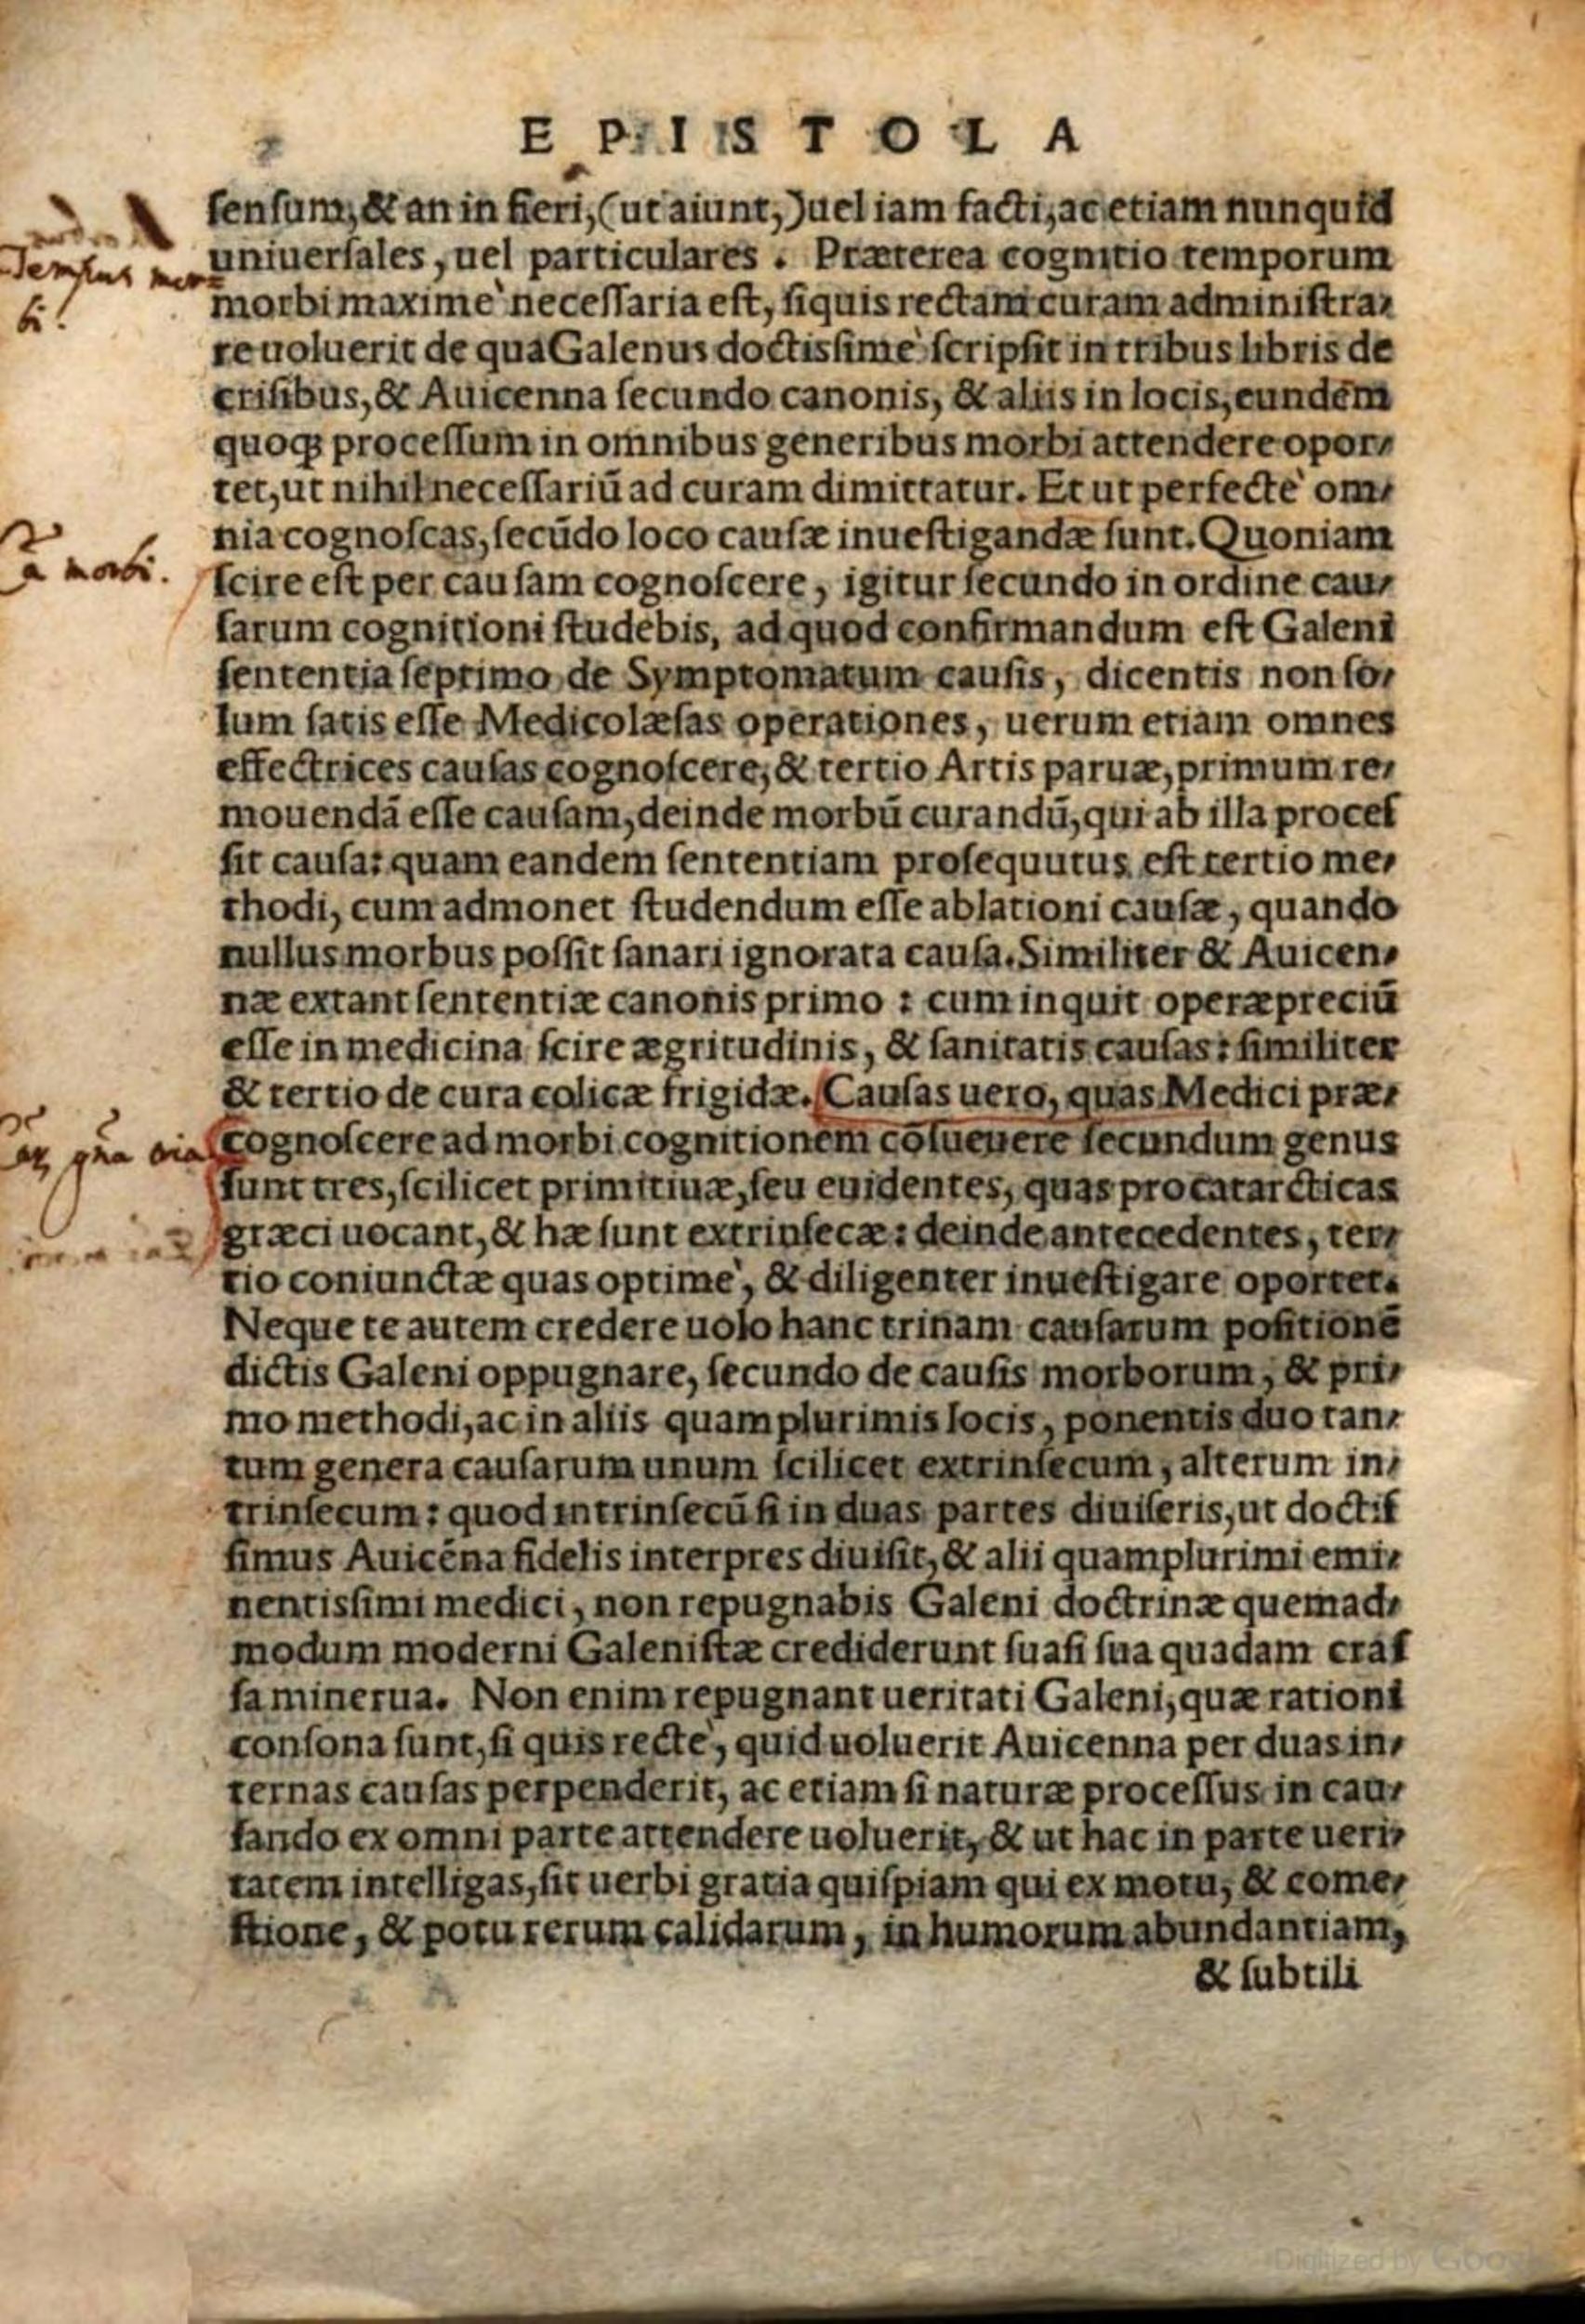 EPISTOLA
sensum, & an in fieri, (ut aiunt,) uel iam facti, ac etiam nunquid
uniuersales, uel particulares. Præterea cognitio temporum
Tempus mor=
bi.
morbi maximè necessaria est, siquis rectam curam administra-
re uoluerit de qua Galenus doctissimè scripsit in tribus libris de
crisibus, & Auicenna secundo canonis, & aliis in locis, eundem
quoq; processum in omnibus generibus morbi attendere opor-
tet, ut nihil necessariũ ad curam dimittatur. Et ut perfectè om-
nia cognoscas, secũdo loco causæ inuestigandæ sunt. Quoniam
Cã morbi.
scire est per causam cognoscere, igitur secundo in ordine cau-
sarum cognitioni studebis, ad quod confirmandum est Galeni
sententia septimo de Symptomatum causis, dicentis non so-
lum satis esse Medico læsas operationes, uerum etiam omnes
effectrices causas cognoscere, & tertio Artis paruæ, primum re-
mouendã esse causam, deinde morbũ curandũ, qui ab illa proces
sit causa: quam eandem sententiam prosequutus est tertio me-
thodi, cum admonet studendum esse ablationi causæ, quando
nullus morbus possit sanari ignorata causa. Similiter & Auicen-
næ extant sententiæ canonis primo: cum inquit operæpreciũ
esse in medicina scire ægritudinis, & sanitatis causas: similiter
& tertio de cura colicæ frigidæ. Causas uero, quas Medici præ-
cognoscere ad morbi cognitionem cõsueuere secundum genus
sunt tres, scilicet primitiuæ, seu euidentes, quas procatarcticas
græci uocant, & hæ sunt extrinsecæ: deinde antecedentes, ter-
tio coniunctæ quas optimè, & diligenter inuestigare oportet.
Neque te autem credere uolo hanc trinam causarum positionẽ
dictis Galeni oppugnare, secundo de causis morborum, & pri-
mo methodi, ac in aliis quamplurimis locis, ponentis duo tan-
tum genera causarum unum scilicet extrinsecum, alterum in-
trinsecum: quod intrinsecũ si in duas partes diuiseris, ut doctis
simus Auicẽna fidelis interpres diuisit, & alii quamplurimi emi-
nentissimi medici, non repugnabis Galeni doctrinæ quemad-
modum moderni Galenistæ crediderunt suasi sua quadam cras
sa minerua. Non enim repugnant ueritati Galeni, quæ rationi
consona sunt, si quis rectè, quid uoluerit Auicenna per duas in-
ternas causas perpenderit, ac etiam si naturæ processus in cau-
sando ex omni parte attendere uoluerit, & ut hac in parte ueri-
tatem intelligas, sit uerbi gratia quispiam qui ex motu, & come-
stione, & potu rerum calidarum, in humorum abundantiam,
& subtili
Digitized by Google